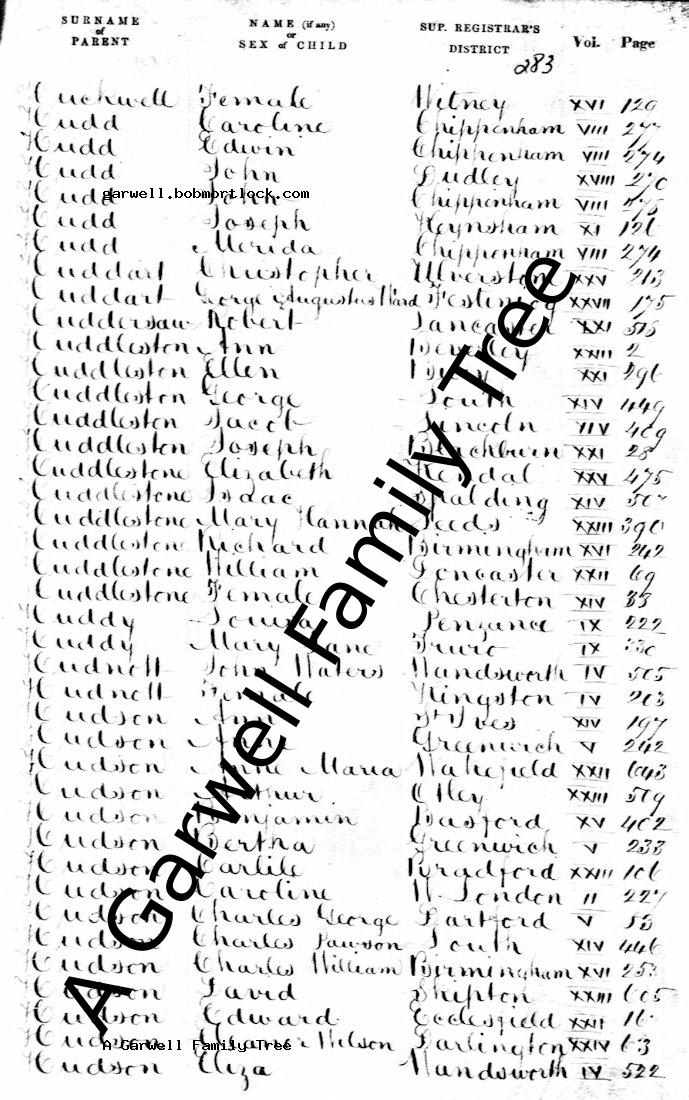 SURNAME of PARENT NAME (if any) or SEX of CHILD SUP. REGISTRAR'S DISTRICT Vol. Page
283
Huckwell Female Witney XVI 129
Hudd Caroline Chippenham VIII 277
Hudd Edwin Chippenham VIII 274
Hudd John Dudley XVIII 270
Hudd John Chippenham VIII 278
garwell.bobmortlock.com
Hudd Joseph Keynsham XI 126
Hudd Merida Chippenham VIII 274
Huddart Christopher Ulverston XXV 213
Huddart George Augustus Ward Festiniog XXVII 175
Huddersaw Robert Lancaster XXI
Huddleston Ann Beverley XXIII 2
Huddleston Ellen Bury XXI 296
Huddleston George Louth XIV 449
Huddleston Jacob Lincoln XIV 409
Huddleston Joseph Blackburn XXI 28
Huddlestone Elizabeth Kendal XXV 475
Huddlestone Isaac Spalding XIV
Huddlestone Mary Hannah Leeds XXIII 390
Huddlestone Richard Birmingham XVI 242
Huddlestone William Doncaster XXII 69
Huddlestone Female Chesterton XIV 33
Huddy Louisa Penzance IX 222
Huddy Mary Jane Truro IX 330
Hudnott John Waters Wandsworth IV 505
Hudnott Female Kingston IV 203
Hudson Ann St Ives XIV 197
Hudson Ann Greenwich V 242
Hudson Anne Maria Wakefield XXII 643
Hudson Arthur Otley XXIII 509
Hudson Benjamin Basford XV 402
Hudson Bertha Greenwich V 233
Hudson Carlile Bradford XXIII 106
Hudson Caroline W. London II 227
Hudson Charles George Dartford V 53
Hudson Charles Pawson Louth XIV 446
Hudson Charles William Birmingham XVI 253
Hudson David Skipton XXIII 605
Hudson Edward Ecclesfield XXII
Hudson Nelson Darlington XXIV 63
A Garwell Family Tree
Hudson Eliza Wandsworth IV 522
A Garwell Family Tree